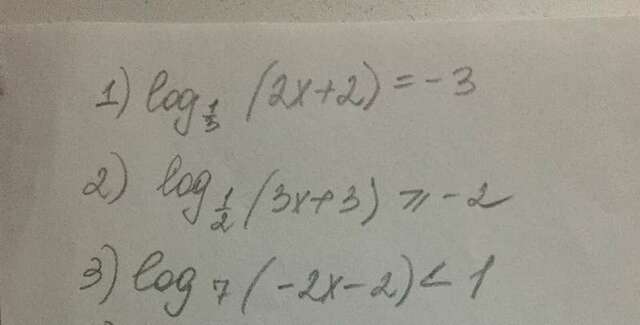 1) log_{1/3} (2x+2) = -3
2) log_{1/2} (3x+3) ⩾ -2
3) log_7 (-2x-2) < 1